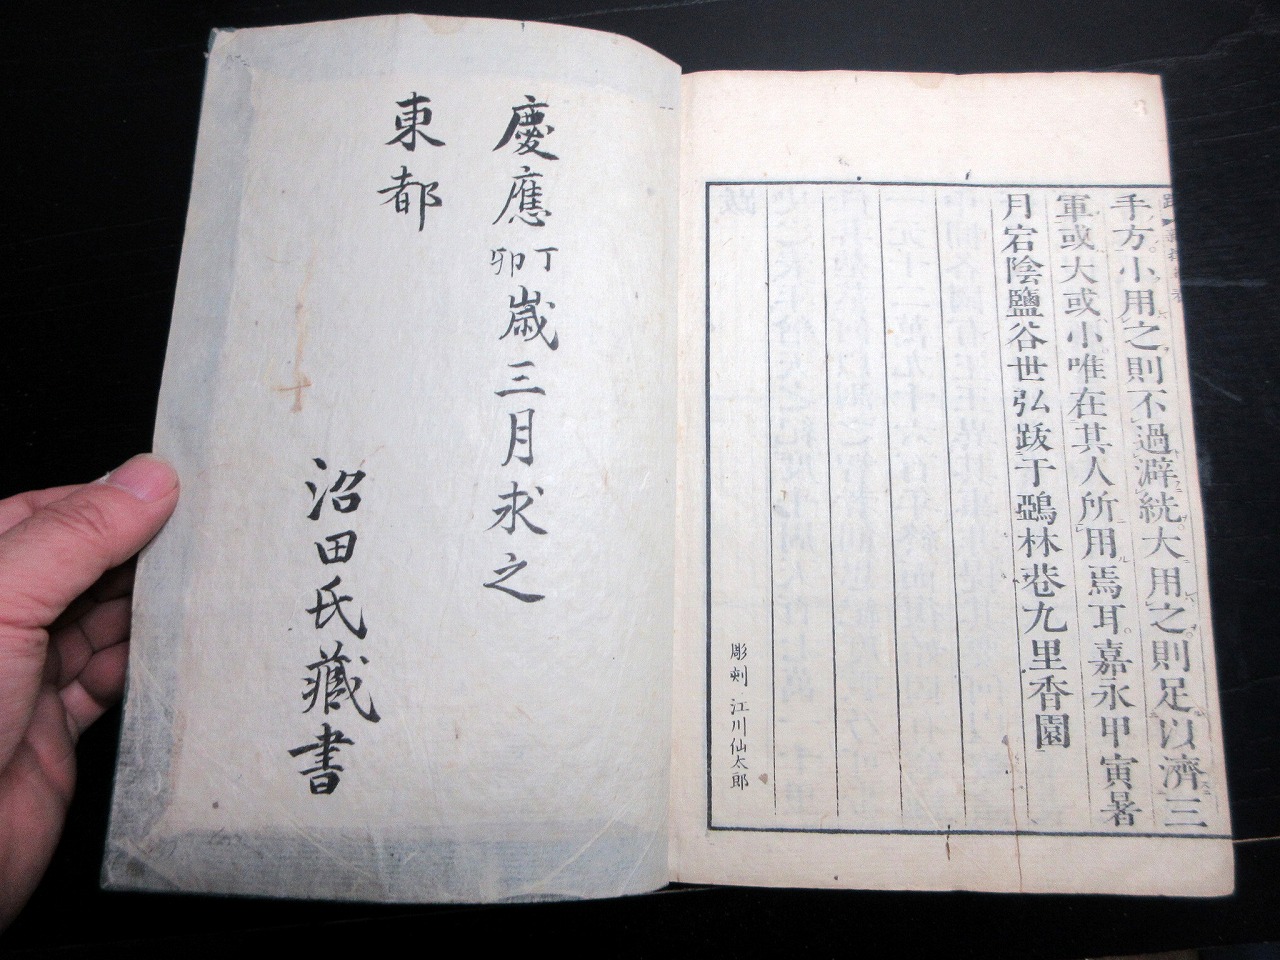 手方小用之則不過澼絖大用之則足以濟三
軍或大或小唯在其人所用焉耳嘉永甲寅暑
月宕陰鹽谷世弘跋于鵶林巷九里香園
彫刻 江川仙太郎
慶應丁卯歳三月求之
東都
沼田氏藏書